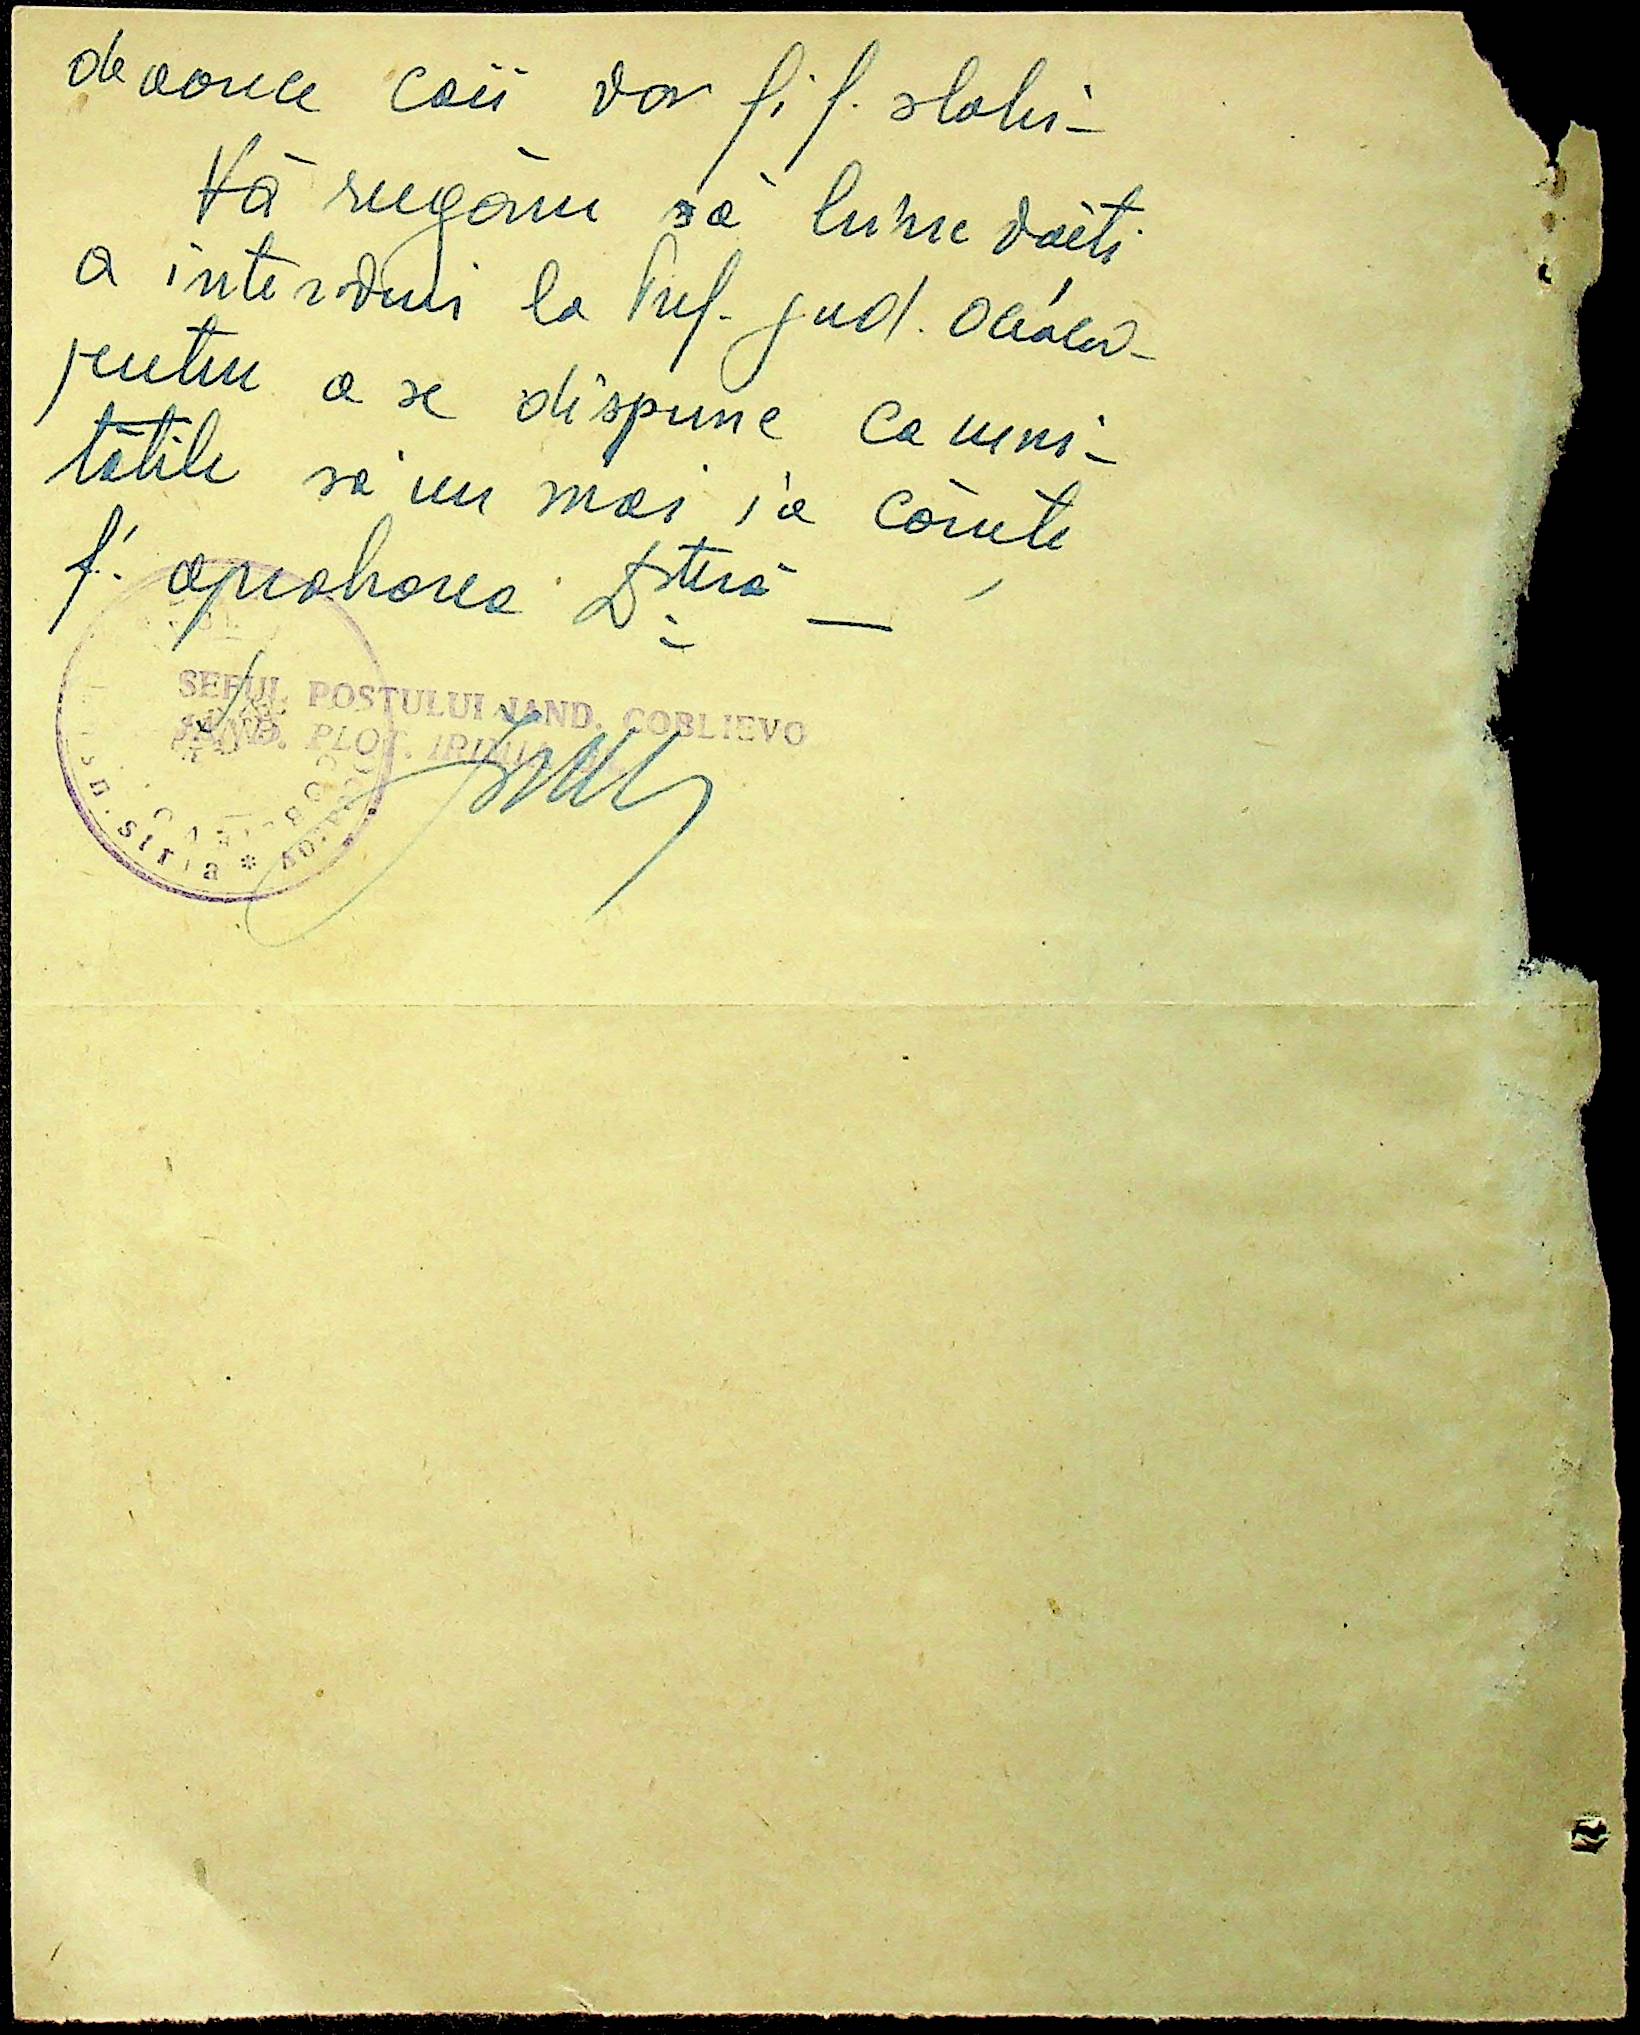 deoarece caii vor fi f. slabi –
Vă rugăm să binevoiți
a interveni la Pref. jud. Oceacov –
pentru a se dispune ca uni–
tățile să nu mai ia căruțe
f. aprobarea Dstră —
SEFUL POSTULUI JAND. COBLIEVO
JAND. PLOT.